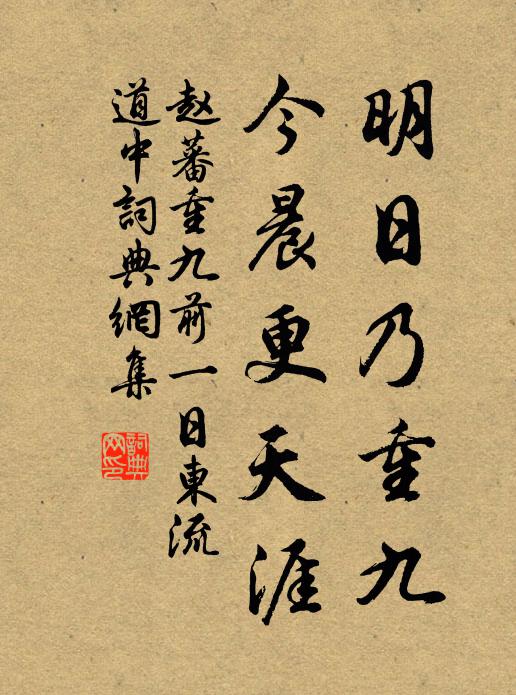 明日乃重九
今晨更天涯
赵蕃重九前一日東流
道中詞典網集
詞典网印